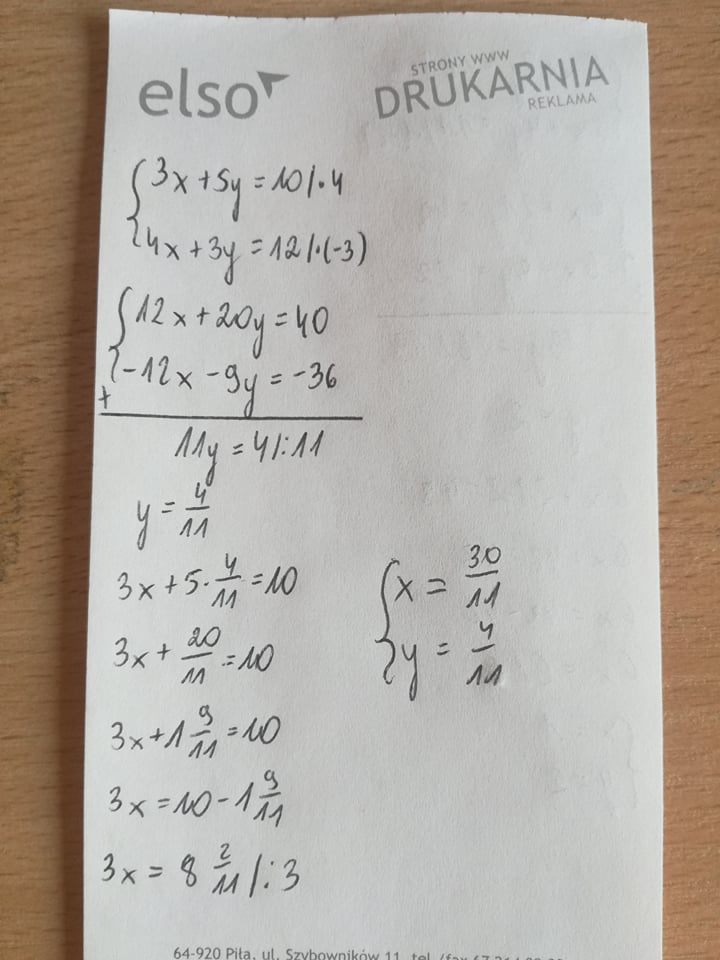 elso
STRONY WWW
DRUKARNIA
REKLAMA
{3x + 5y = 10 /·4
4x + 3y = 12 /·(-3)
{12x + 20y = 40
-12x - 9y = -36
+
11y = 4 /:11
y = 4/11
3x + 5·4/11 = 10
3x + 20/11 = 10
3x + 1 9/11 = 10
3x = 10 - 1 9/11
3x = 8 2/11 /:3
{x = 30/11
y = 4/11
64-920 Piła, ul. Szybowników 11, tel./fax 67